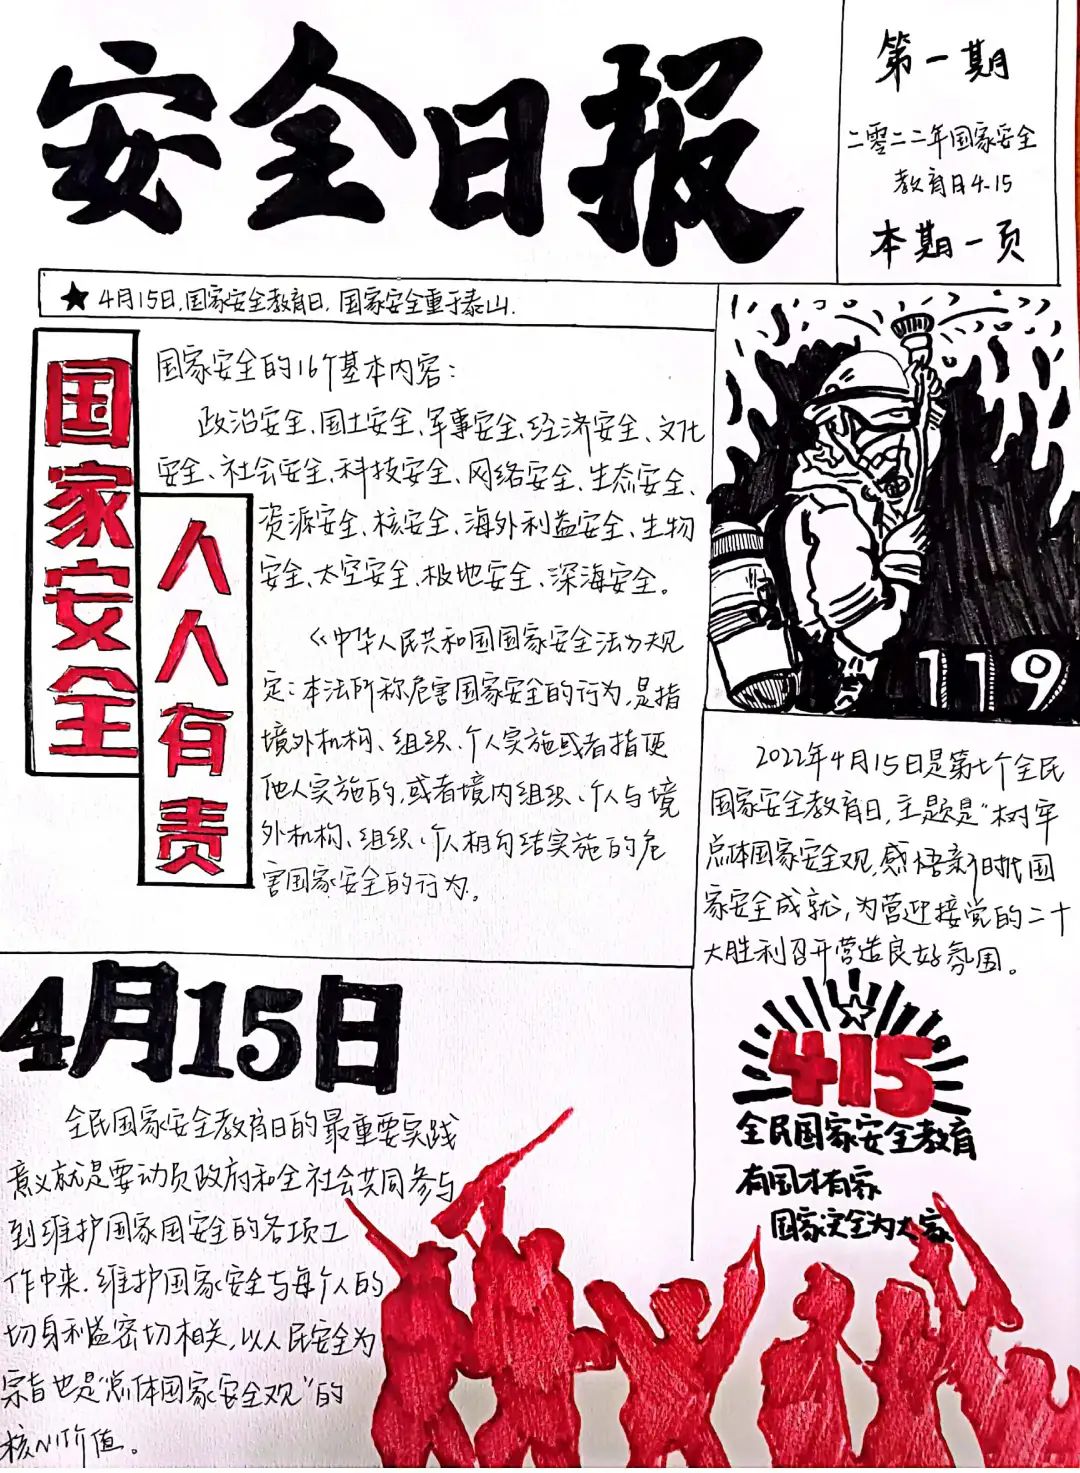 安全日报
第一期
二零二二年国家安全
教育日4.15
本期一页
★ 4月15日,国家安全教育日,国家安全重于泰山.
国家安全
人人有责
国家安全的16个基本内容:
政治安全、国土安全、军事安全、经济安全、文化
安全、社会安全、科技安全、网络安全、生态安全、
资源安全、核安全、海外利益安全、生物
安全、太空安全、极地安全、深海安全。
《中华人民共和国国家安全法》规
定:本法所称危害国家安全的行为,是指
境外机构、组织、个人实施或者指使
他人实施的,或者境内组织、个人与境
外机构、组织、个人相勾结实施的危
害国家安全的行为。
119
2022年4月15日是第七个全民
国家安全教育日,主题是“树牢
总体国家安全观,感悟新时代国
家安全成就,为营迎接党的二十
大胜利召开营造良好氛围。
4月15日
全民国家安全教育日的最重要实践
意义就是要动员政府和全社会共同参与
到维护国家国安全的各项工
作中来.维护国家安全与每个人的
切身利益密切相关,以人民安全为
宗旨也是“总体国家安全观”的
核心价值。
415
全民国家安全教育
有国才有家
国家安全为大家